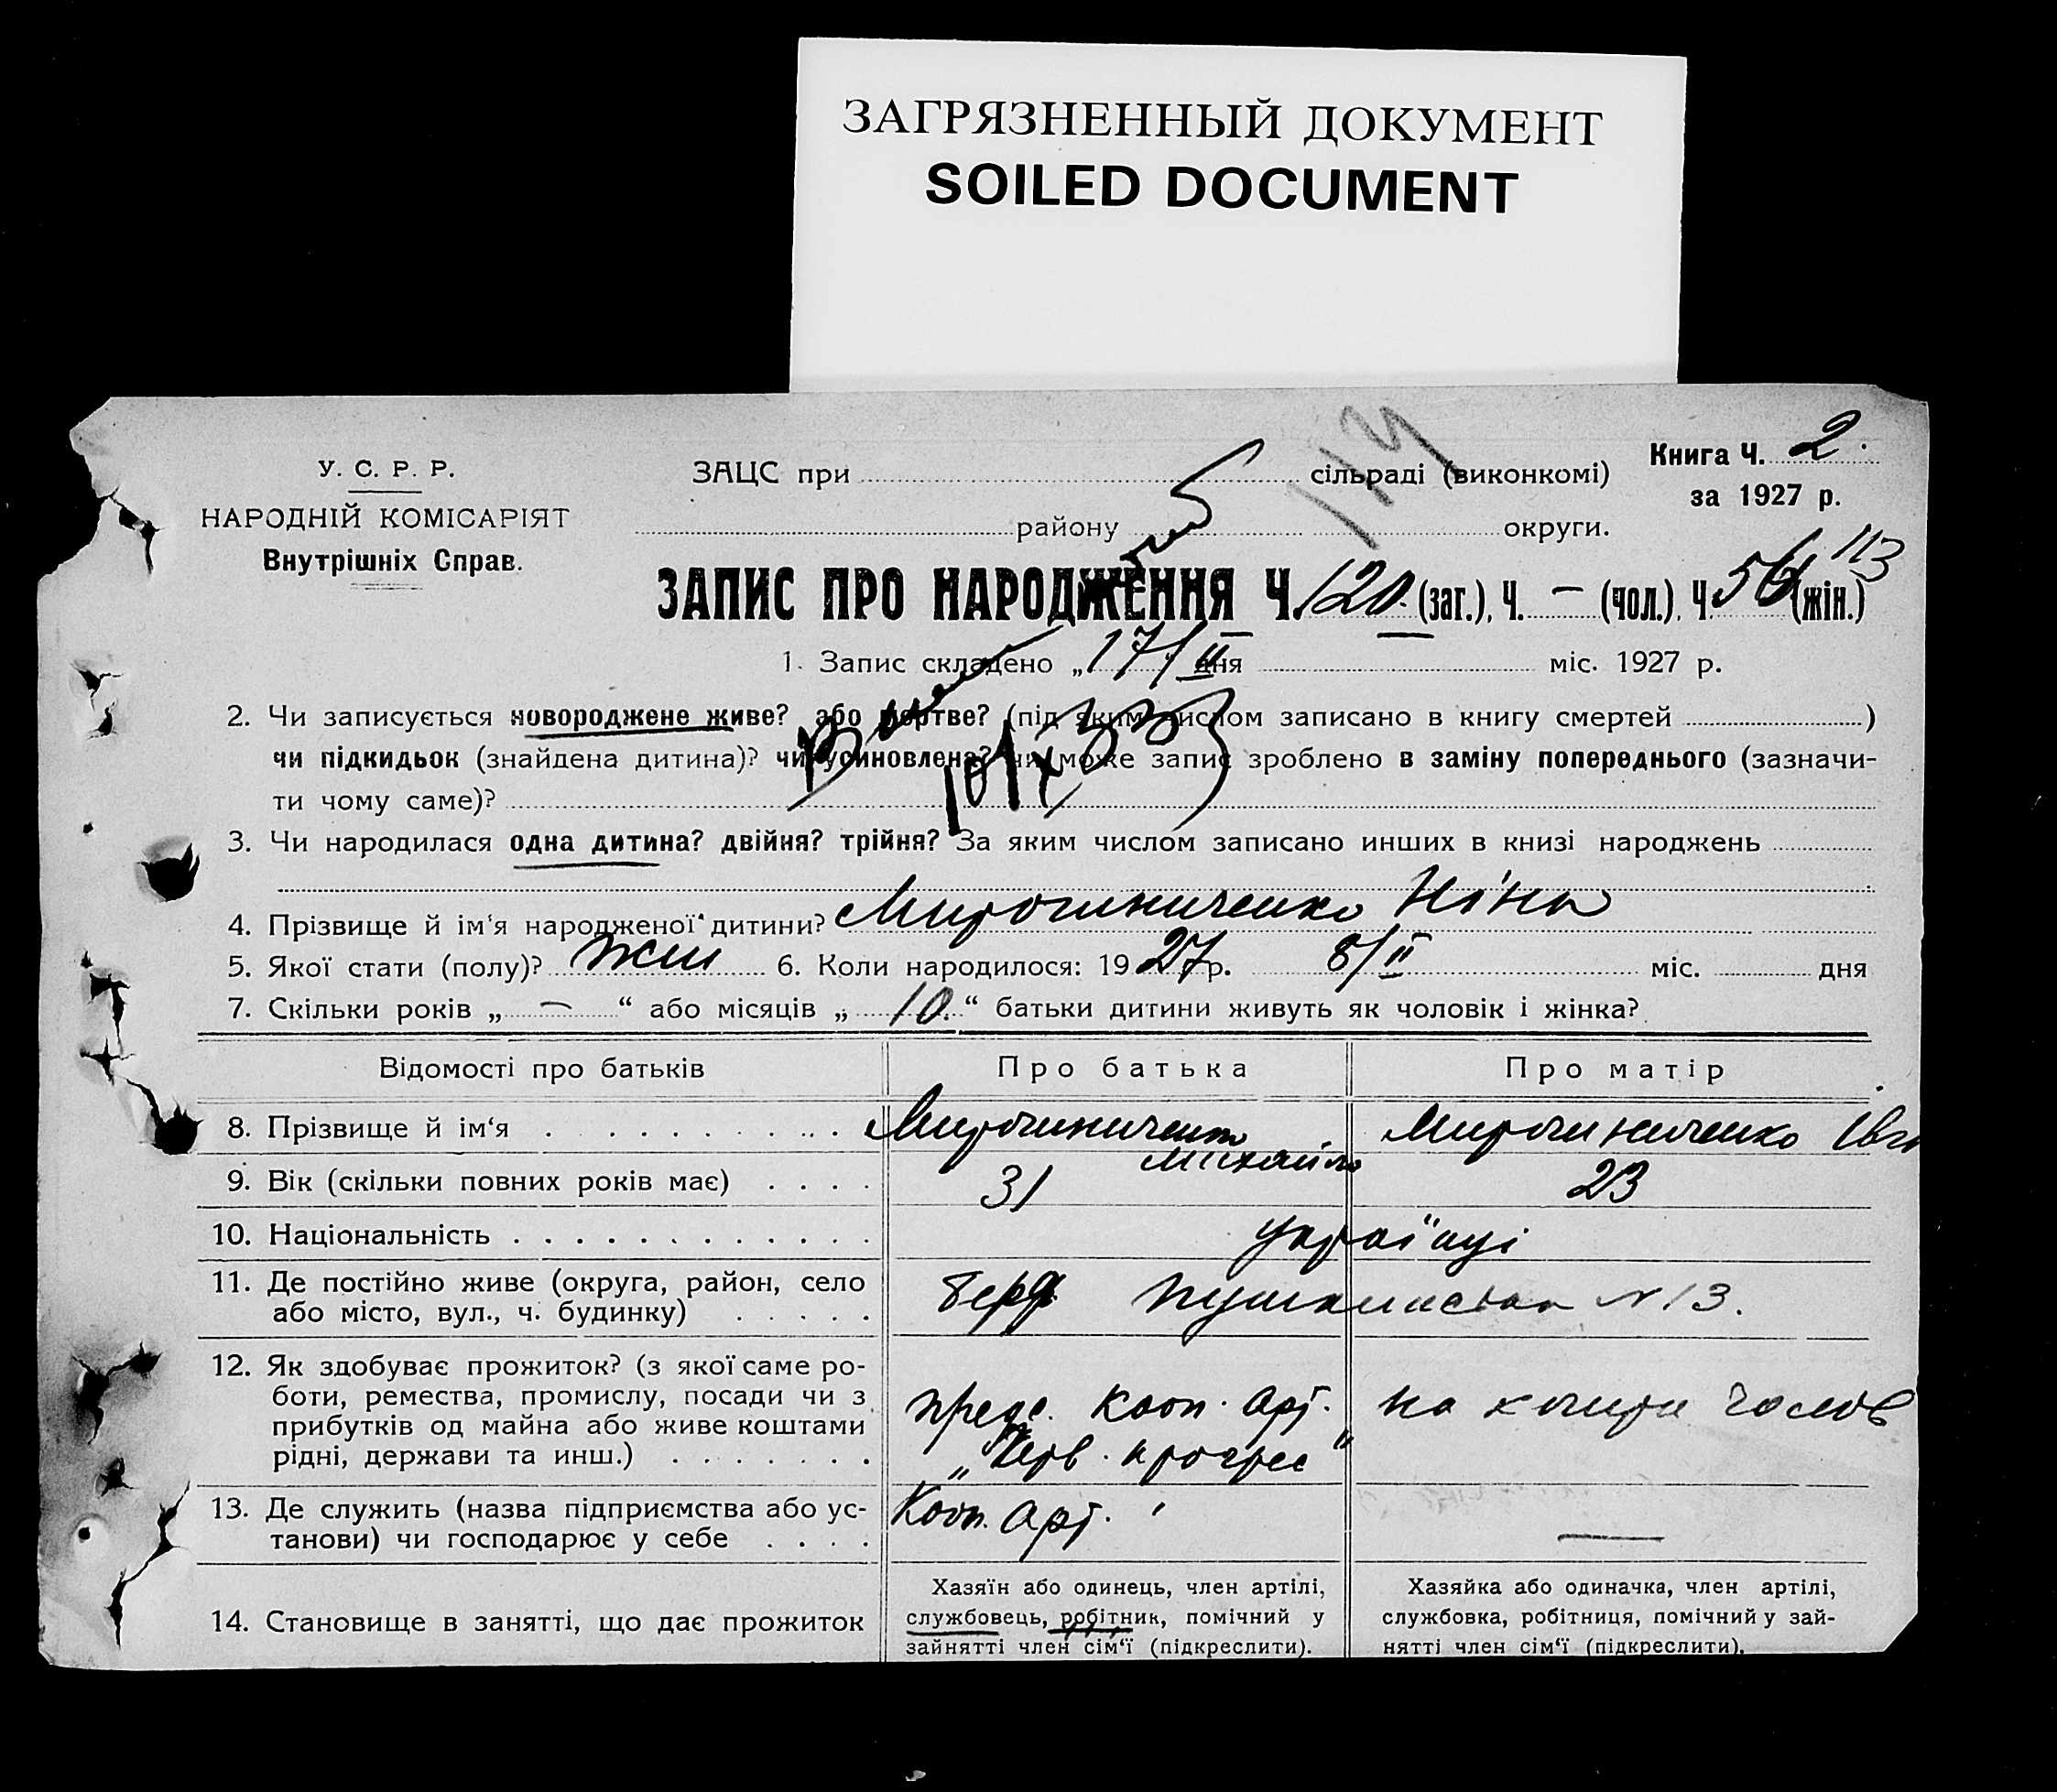 ЗАГРЯЗНЕННЫЙ ДОКУМЕНТ
SOILED DOCUMENT
У. С. Р. Р.
НАРОДНІЙ КОМІСАРІЯТ
Внутрішніх Справ.
ЗАЦС при сільраді (виконкомі)
району округи.
Книга Ч. 2.
за 1927 р.
114
113
ЗАПИС ПРО НАРОДЖЕННЯ Ч. 120 (заг.), Ч. — (чол.), Ч. 56 (жін.)
1. Запис складено „17/II дня міс. 1927 р.
2. Чи записується новороджене живе? або мертве? (під яким числом записано в книгу смертей )
чи підкидьок (знайдена дитина)? чи усиновлена? чи може запис зроблено в заміну попереднього (зазначи-
ти чому саме)?
3. Чи народилася одна дитина? двійня? трійня? За яким числом записано инших в книзі народжень
4. Прізвище й ім‘я народженої дитини? Мирошниченко Ніна
5. Якої стати (полу)? жін 6. Коли народилося: 1927 р. 8/II міс. дня
7. Скільки років „ — “ або місяців „ 10. “ батьки дитини живуть як чоловік і жінка?
Відомості про батьків Про батька Про матір
8. Прізвище й ім‘я Мирошниченко Михайло Мирошниченко Євг
9. Вік (скільки повних років має) 31 23
10. Національність українці
11. Де постійно живе (округа, район, село
або місто, вул., ч. будинку) Берд Пушкинская N 13.
12. Як здобуває прожиток? (з якої саме ро-
боти, ремества, промислу, посади чи з
прибутків од майна або живе коштами
рідні, держави та инш.)
предс. Кооп. Арт. на кошти чолов
„Черв. прогрес“
13. Де служить (назва підприємства або ус-
танови) чи господарює у себе Кооп. Арт. —
14. Становище в занятті, що дає прожиток
Хазяїн або одинець, член артілі,
службовець, робітник, помічний у
зайнятті член сім‘ї (підкреслити).
Хазяйка або одиначка, член артілі,
службовка, робітниця, помічний у зай-
нятті член сім‘ї (підкреслити).